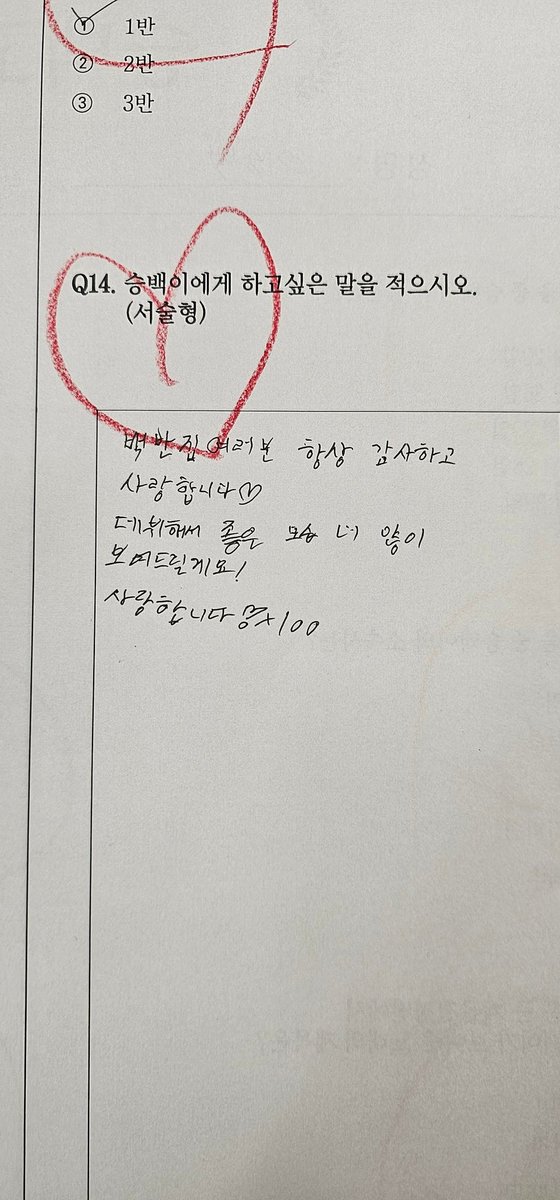 ① 1반
② 2반
③ 3반
Q14. 승백이에게 하고싶은 말을 적으시오.
(서술형)
백반집 여러분 항상 감사하고
사랑합니다♡
데뷔해서 좋은 모습 더 많이
보여드릴게요!
사랑합니다 ×100